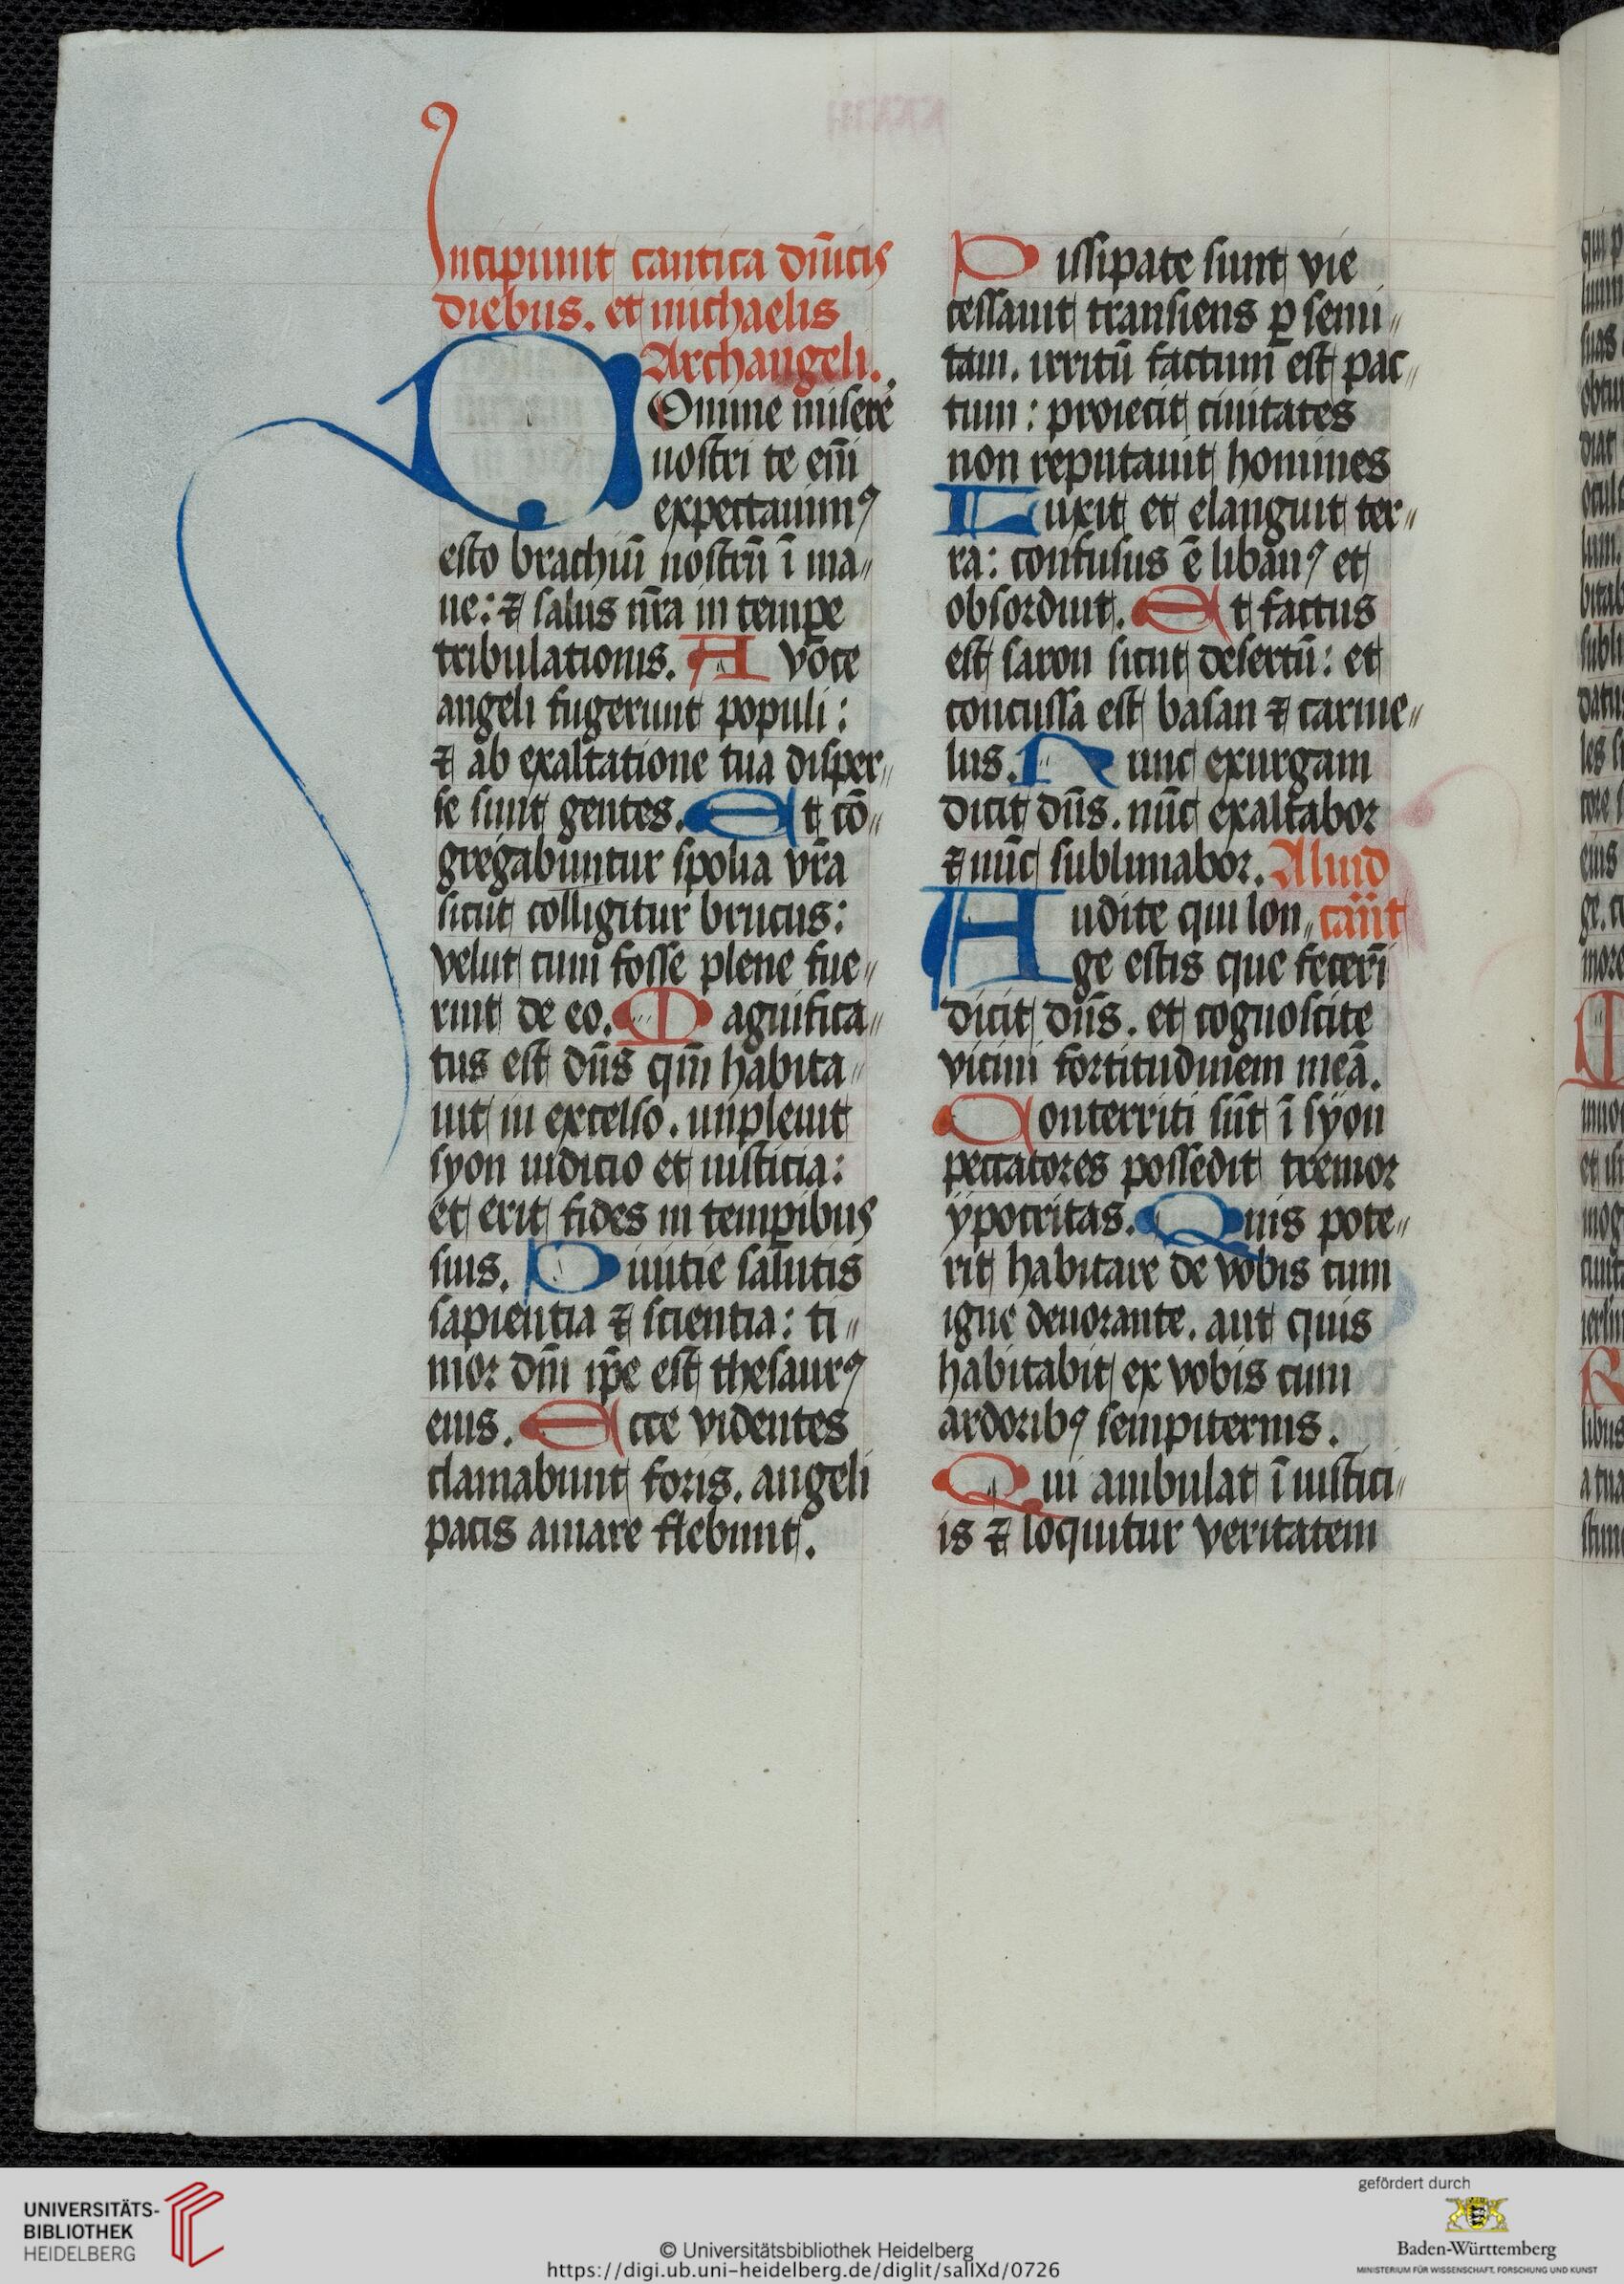 Incipiunt cantica dn̄icis
diebus. et michaelis
Archangeli.
DOmine miserē
nostri te em̄
expectauimꝰ
esto brachiū nostrū ī ma„
ne: ⁊ salus nr̄a in tempe
tribulationis. A voce
angeli fugerunt populi:
⁊ ab exaltatione tua disper„
se sunt gentes. Et cō„
gregabuntur spolia vr̄a
sicut colligitur brucus:
velut cum fosse plene fue„
rint de eo. Magnifica„
tus est dn̄s qm̄ habita„
uit in excelso. impleuit
syon iudicio et iusticia:
et erit fides in temꝑibus
suis. Diuitie salutis
sapientia ⁊ scientia: ti„
mor dn̄i ip̄e est thesaurꝰ
eius. Ecce videntes
clamabunt foris. angeli
pacis amare flebunt.
Dissipate sunt vie
cessauit transiens ꝑ semi„
tam. irritū factum est pac„
tum: proiecit ciuitates
non reputauit homines
Luxit et elanguit ter„
ra: confusus ē libanꝰ et
obsorduit. Et factus
est saron sicut desertū: et
concussa est basan ⁊ carme„
lus. Nunc exurgam
dicit dn̄s. nūc exaltabor
⁊ nūc sublimabor. Aliud
Audite qui lon„ cān̄t
ge estis que fecerī
dicit dn̄s. et cognoscite
vicini fortitudinem meā.
Conterriti sūt ī syon
peccatores possedit tremor
ypocritas. Quis pote„
rit habitare de vobis cum
igne deuorante. aut quis
habitabit ex vobis cum
ardoribꝰ sempiternis.
Qui ambulat ī iustici„
is ⁊ loquitur veritatem
UNIVERSITÄTS-
BIBLIOTHEK
HEIDELBERG
© Universitätsbibliothek Heidelberg
https://digi.ub.uni-heidelberg.de/diglit/sallXd/0726
gefördert durch
Baden-Württemberg
MINISTERIUM FÜR WISSENSCHAFT, FORSCHUNG UND KUNST